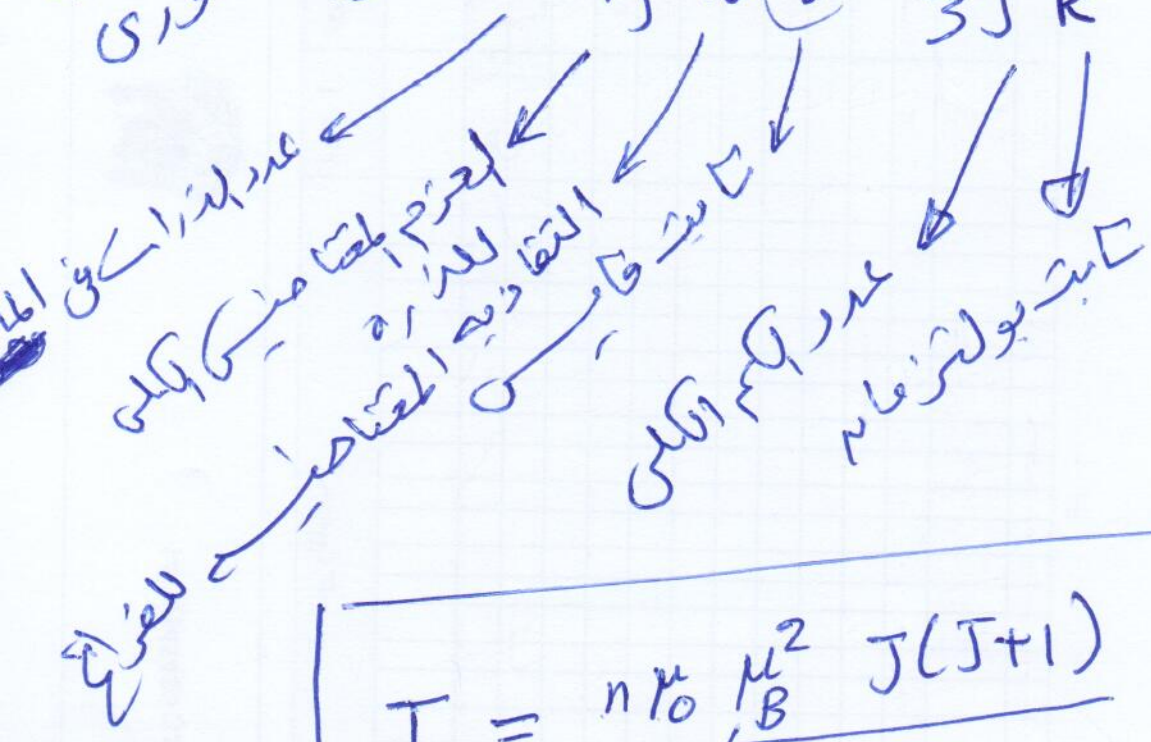 3 J k
عدد الذرات فى
العزم المغناطيسى الكلى
للذره
النفاذيه المغناطيسيه للفراغ
ثابت فايس
عدد الكم الكلى
ثابت بولتزمان
T = n μ₀ μ_B² J(J+1)